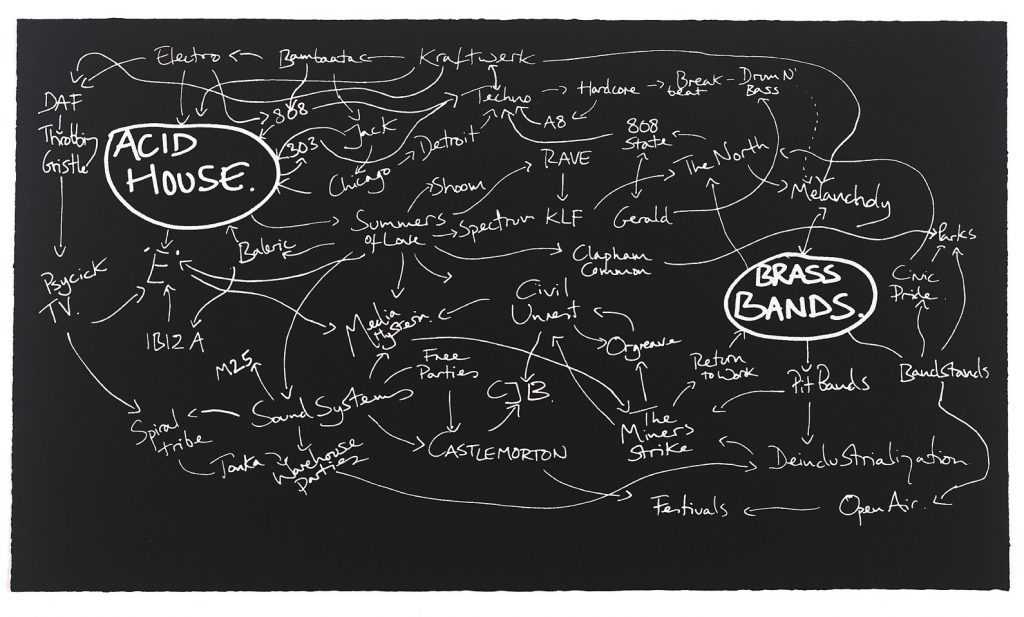 Electro
Bambaataa
Kraftwerk
DAF
Throbbing
Gristle
808
Techno
Hardcore
Break
beat
Drum N'
Bass
ACID
HOUSE.
303
Jack
Chicago
Detroit
A8
808
State
The North
RAVE
Shoom
Summers
of Love
Spectrum
KLF
Gerald
Melancholy
Baleric
Clapham
Common
Parks
E.
Psycick
TV.
BRASS
BANDS.
Civic
Pride
Civil
Unrest
IBIZA
Media
Hysteria.
Orgreave
M25
Free
Parties
Return
to Work
Pit Bands
Bandstands
CJB.
Sound Systems
Spiral
tribe
The
Miners
Strike
CASTLEMORTON
Tonka
Warehouse
Parties
Deindustrialization
Festivals
Open Air.